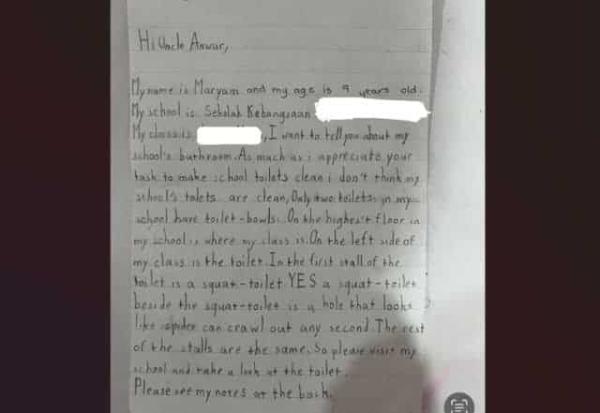 Hi Uncle Anwar,
My name is Maryam and my age is 9 years old.
My school is Sekolah Kebangsaan
My class is , I want to tell you about my
school's bathroom. As much as i appreciate your
task to make school toilets clean i don't think my
school's toilets are clean, Only two toilets in my
school have toilet-bowls. On the highest floor in
my school is where my class is. On the left side of
my class is the toilet. In the first stall of the
toilet is a squat-toilet YES a squat-toilet
beside the squat-toilet is a hole that looks
like spider can crawl out any second. The rest
of the stalls are the same. So please visit my
school and take a look at the toilet.
Please see my notes at the back.